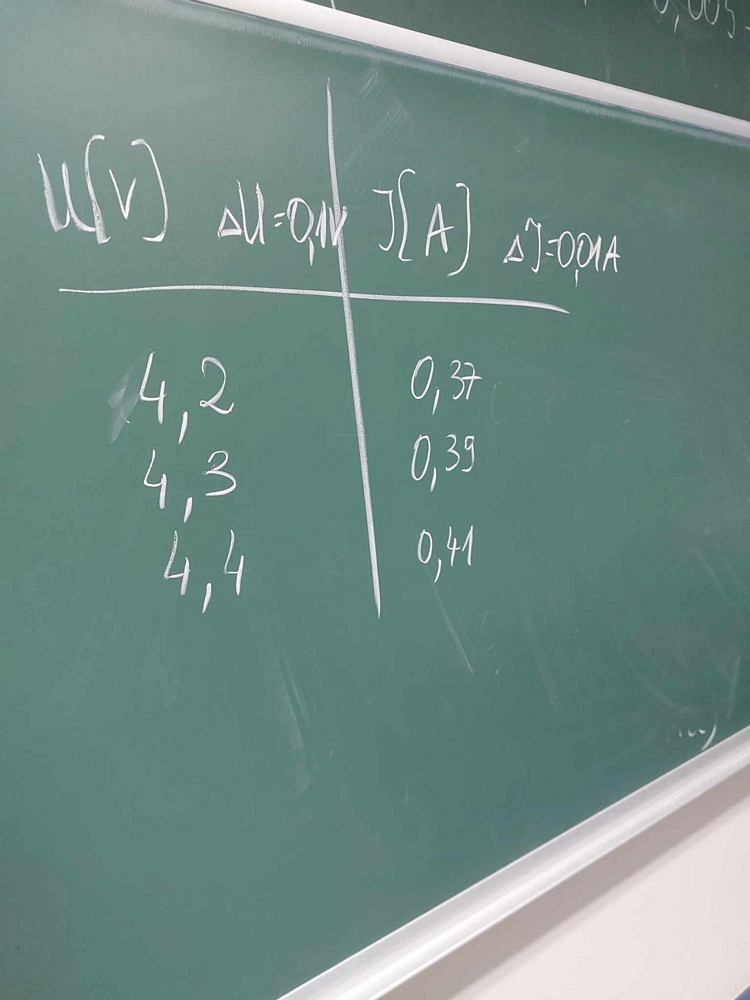 0,005
U[V] ΔU=0,1V I[A] ΔI=0,01A
4,2 0,37
4,3 0,39
4,4 0,41